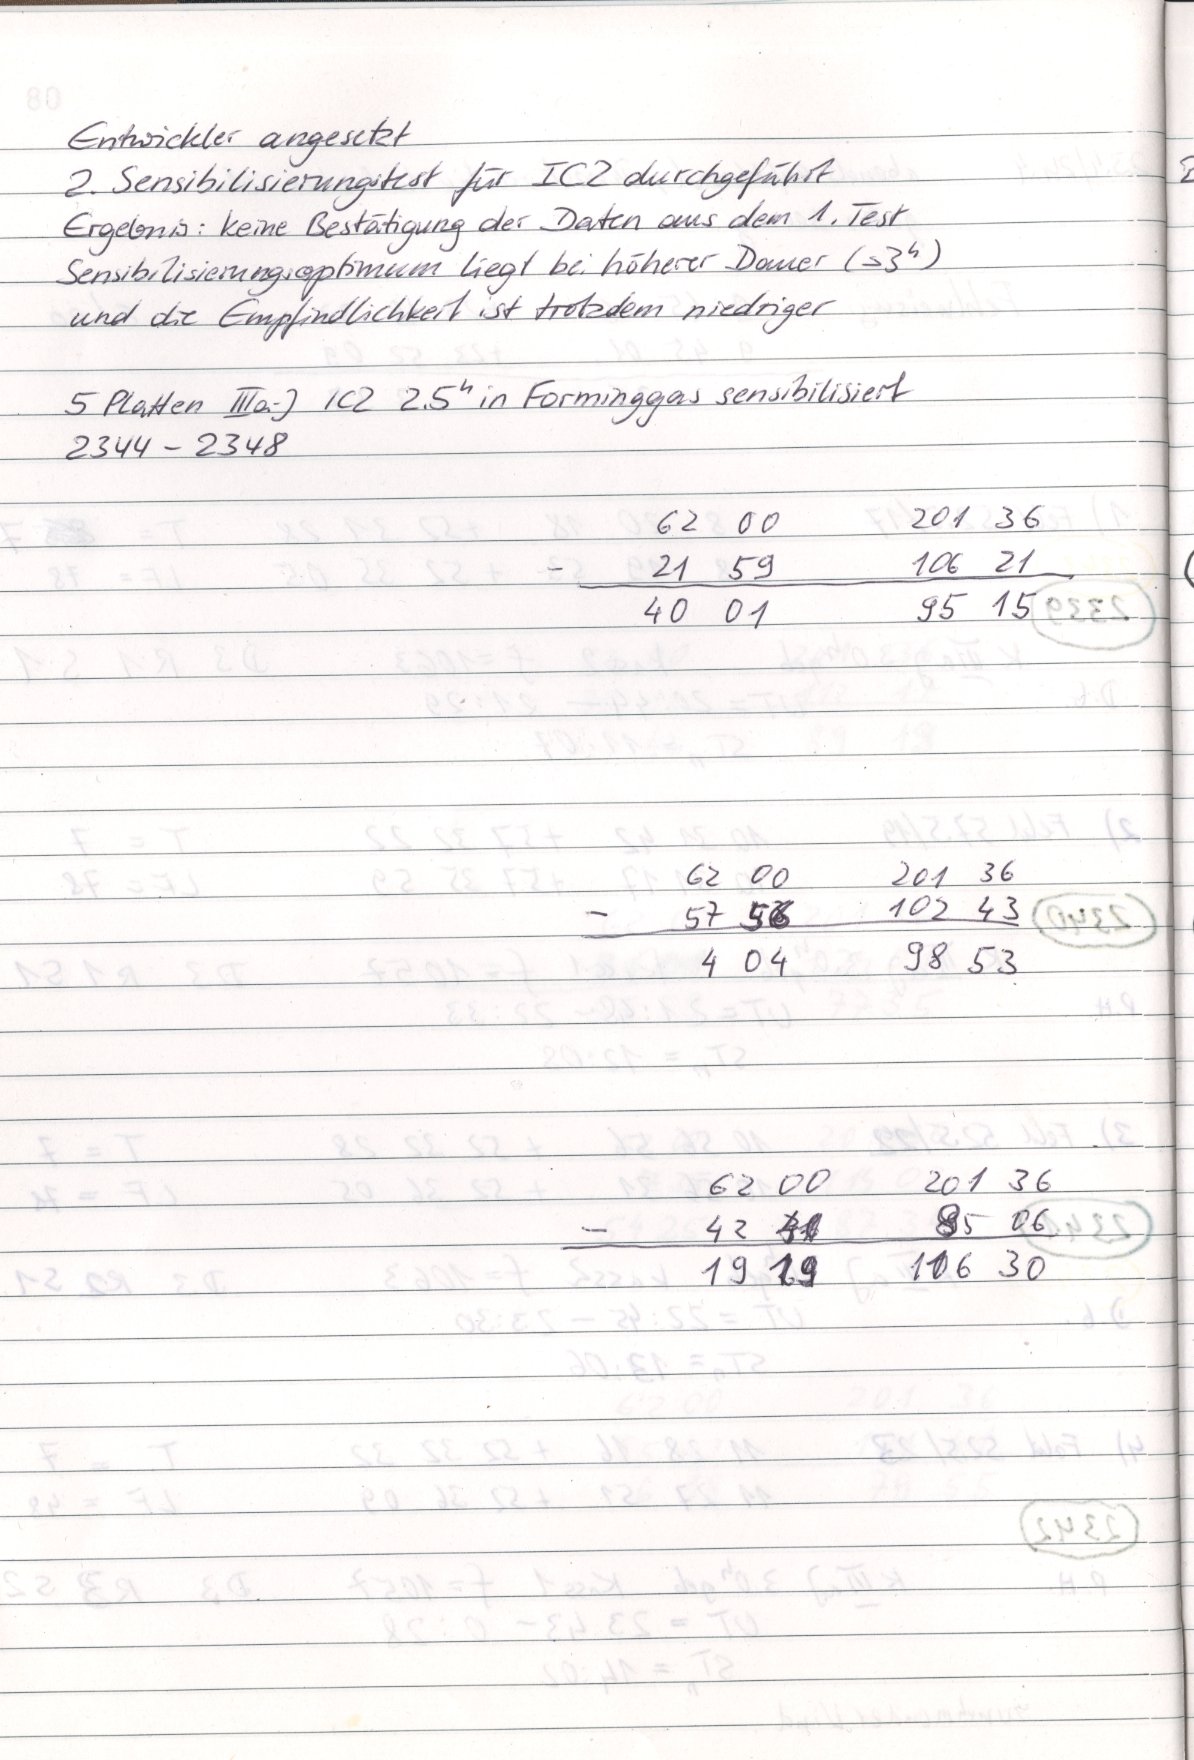 Entwickler angesetzt
2. Sensibilisierungstest für IC2 durchgeführt
Ergebnis: keine Bestätigung der Daten aus dem 1. Test
Sensibilisierungsoptimum liegt bei höherer Dauer (≥3ʰ)
und die Empfindlichkeit ist trotzdem niedriger
5 Platten IIIa-J IC2 2.5ʰ in Forminggas sensibilisiert
2344 – 2348
62 00 201 36
- 21 59 106 21
40 01 95 15
62 00 201 36
- 57 56 102 43
4 04 98 53
62 00 201 36
- 42 41 95 06
19 19 106 30